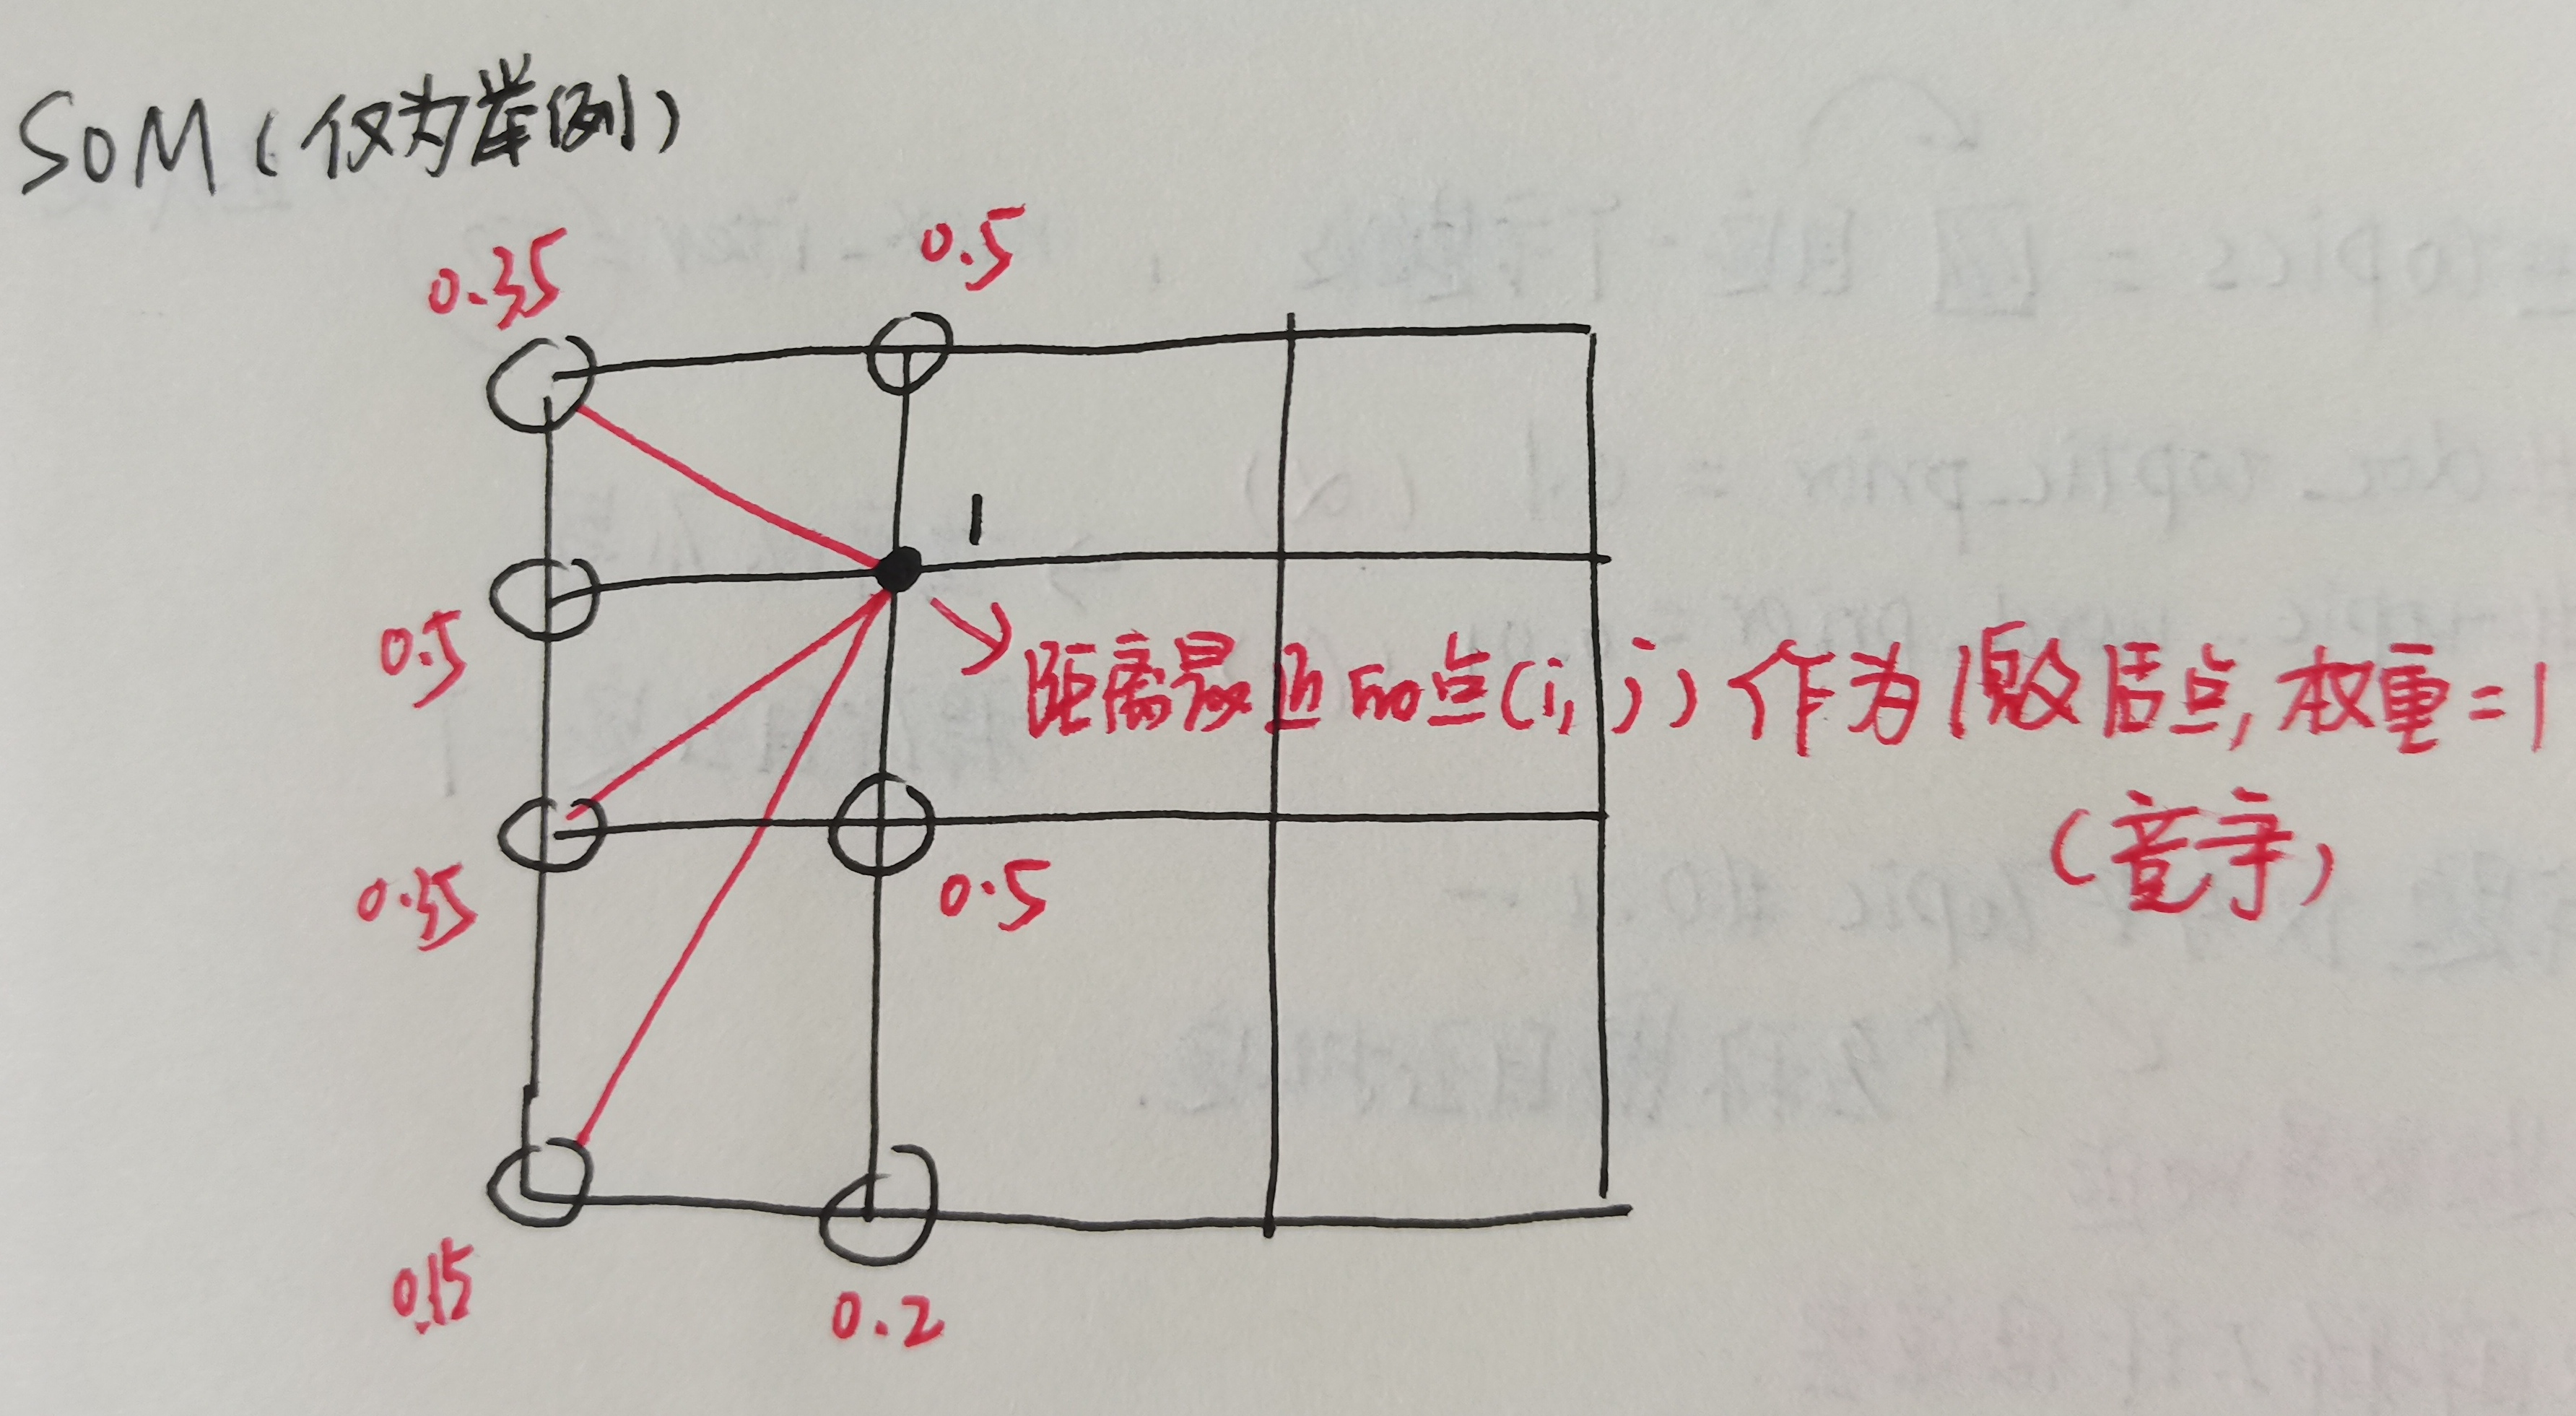 SOM(仅为举例)
0.35
0.5
1
0.5
距离最近的点(i,j)作为激活点,权重=1
(竞争)
0.35
0.5
0.15
0.2